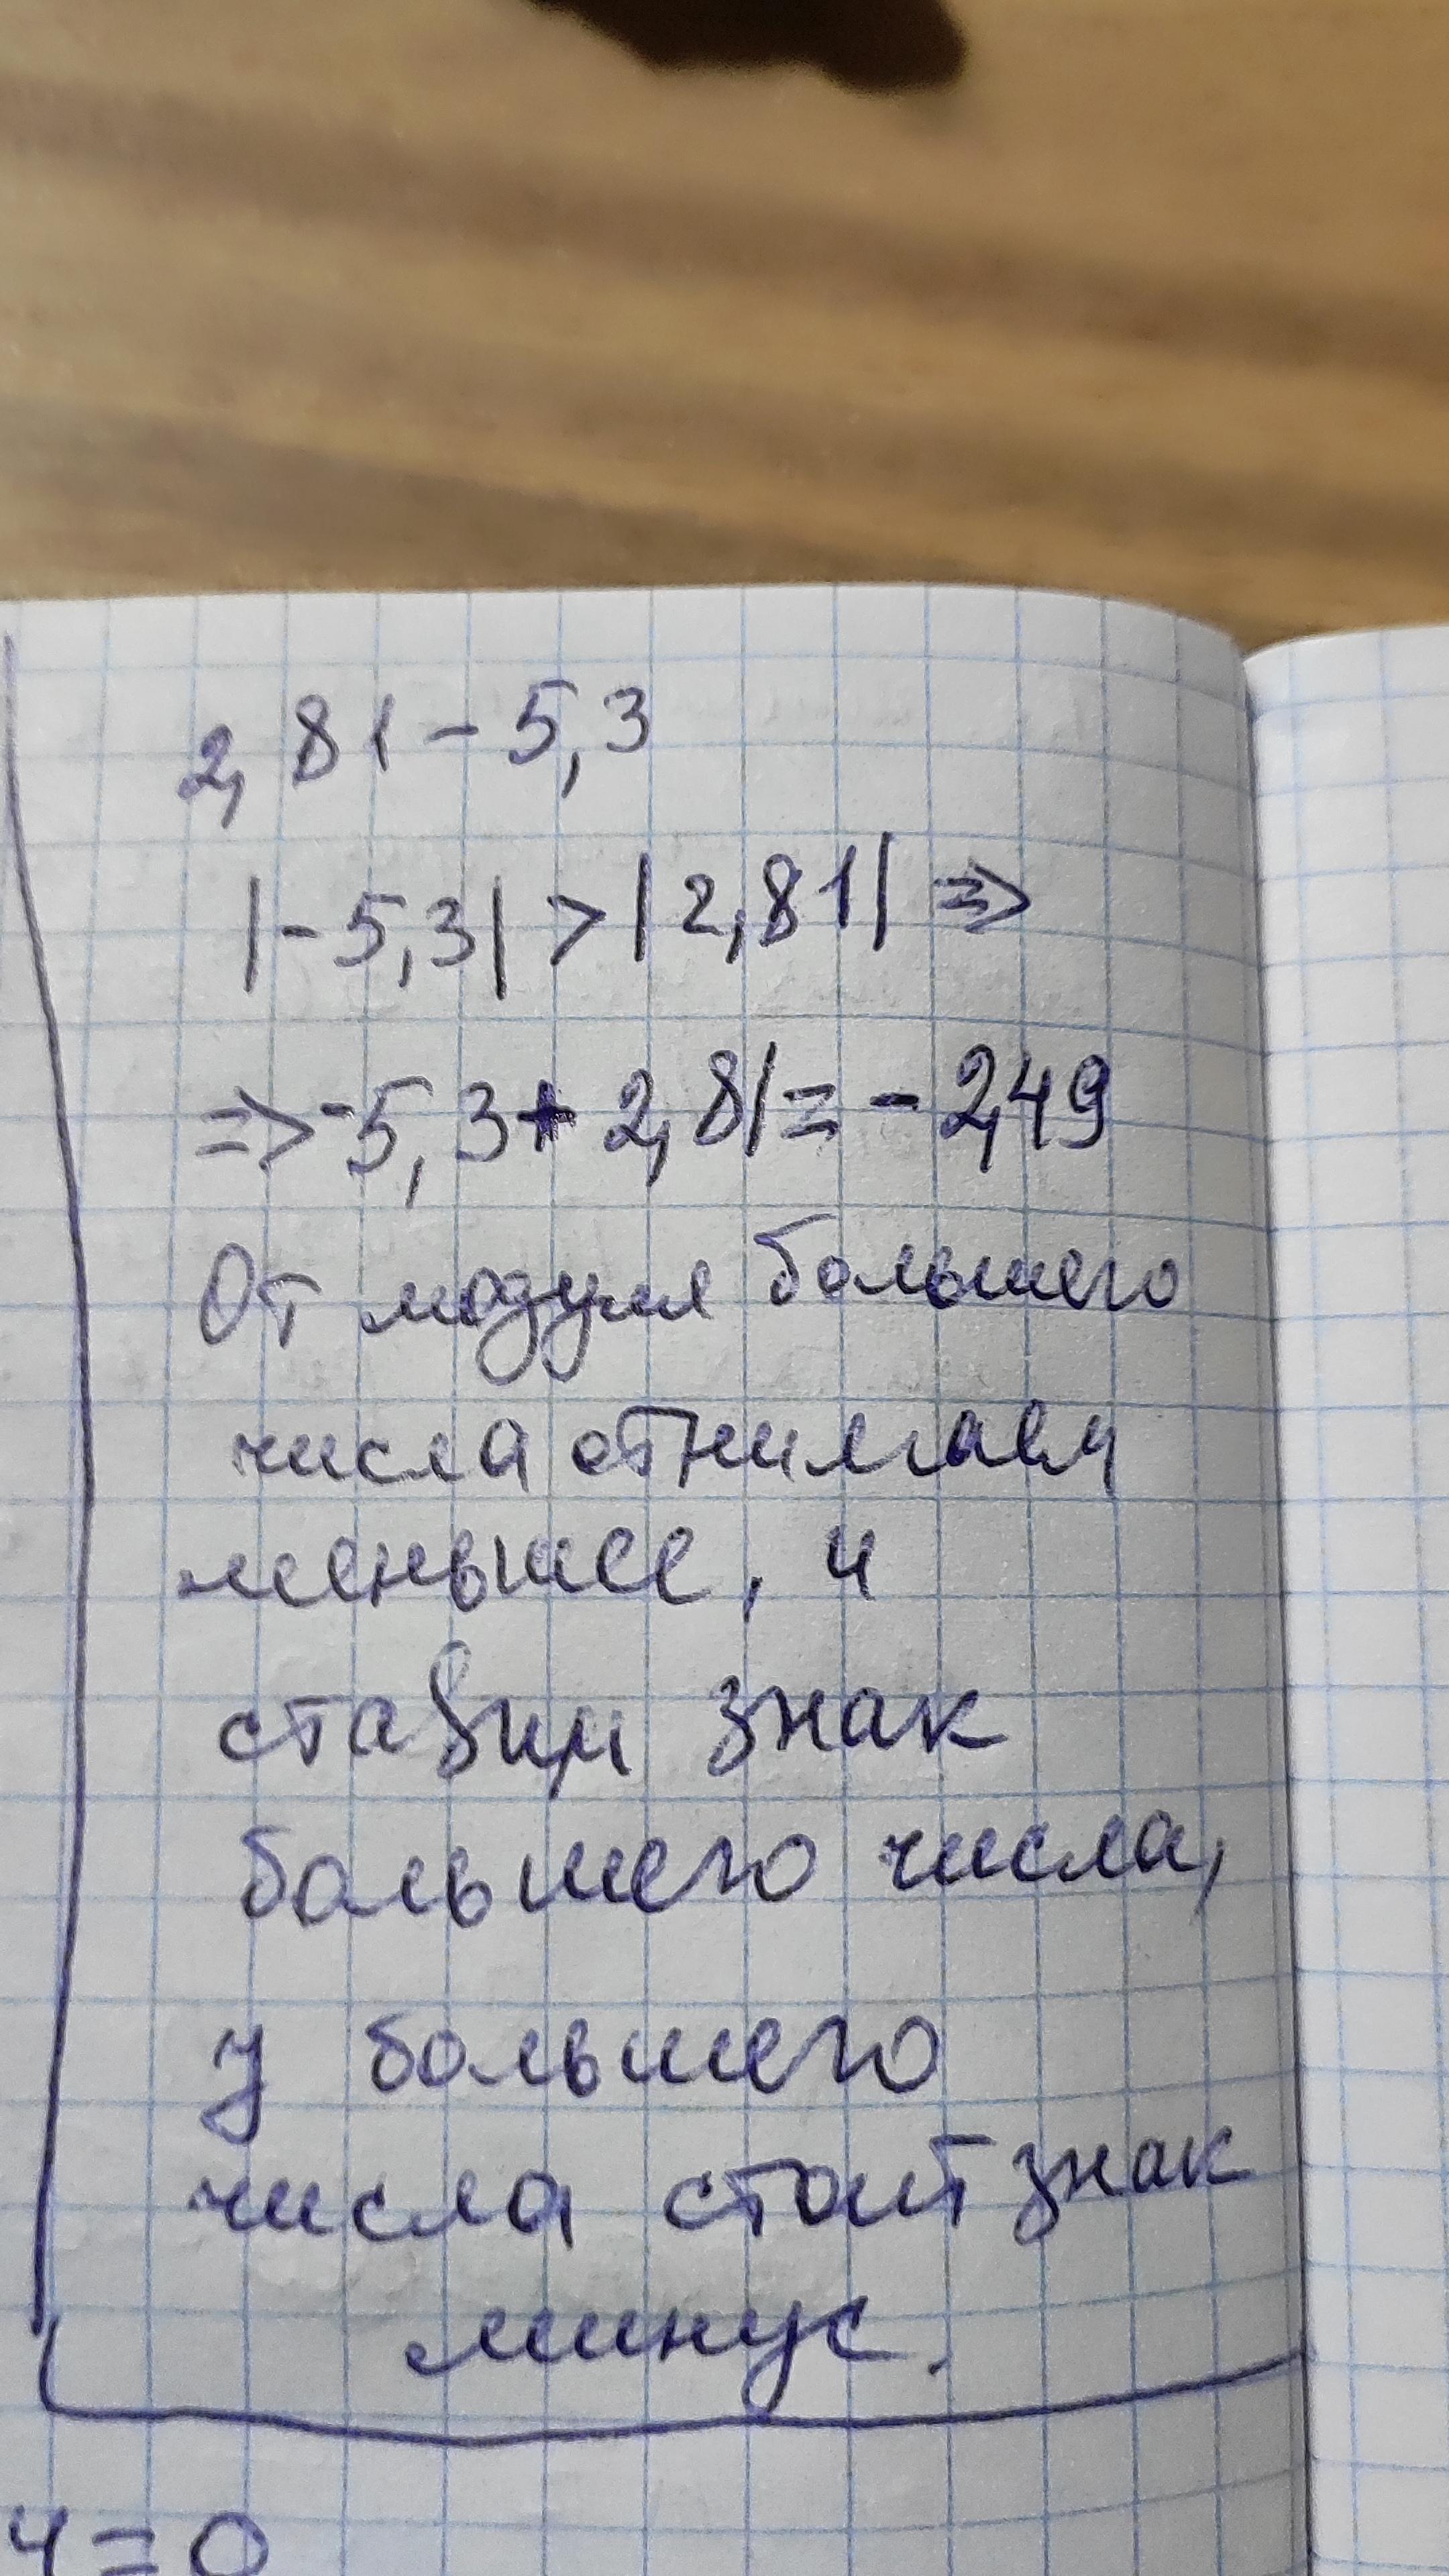 2,81 - 5,3
|-5,3| > |2,81| =>
=> -5,3 + 2,81 = - 2,49
От модуля большего
числа отнимаем
меньшее, и
ставим знак
большего числа,
у большего
числа стоит знак
минус.
ч = 0